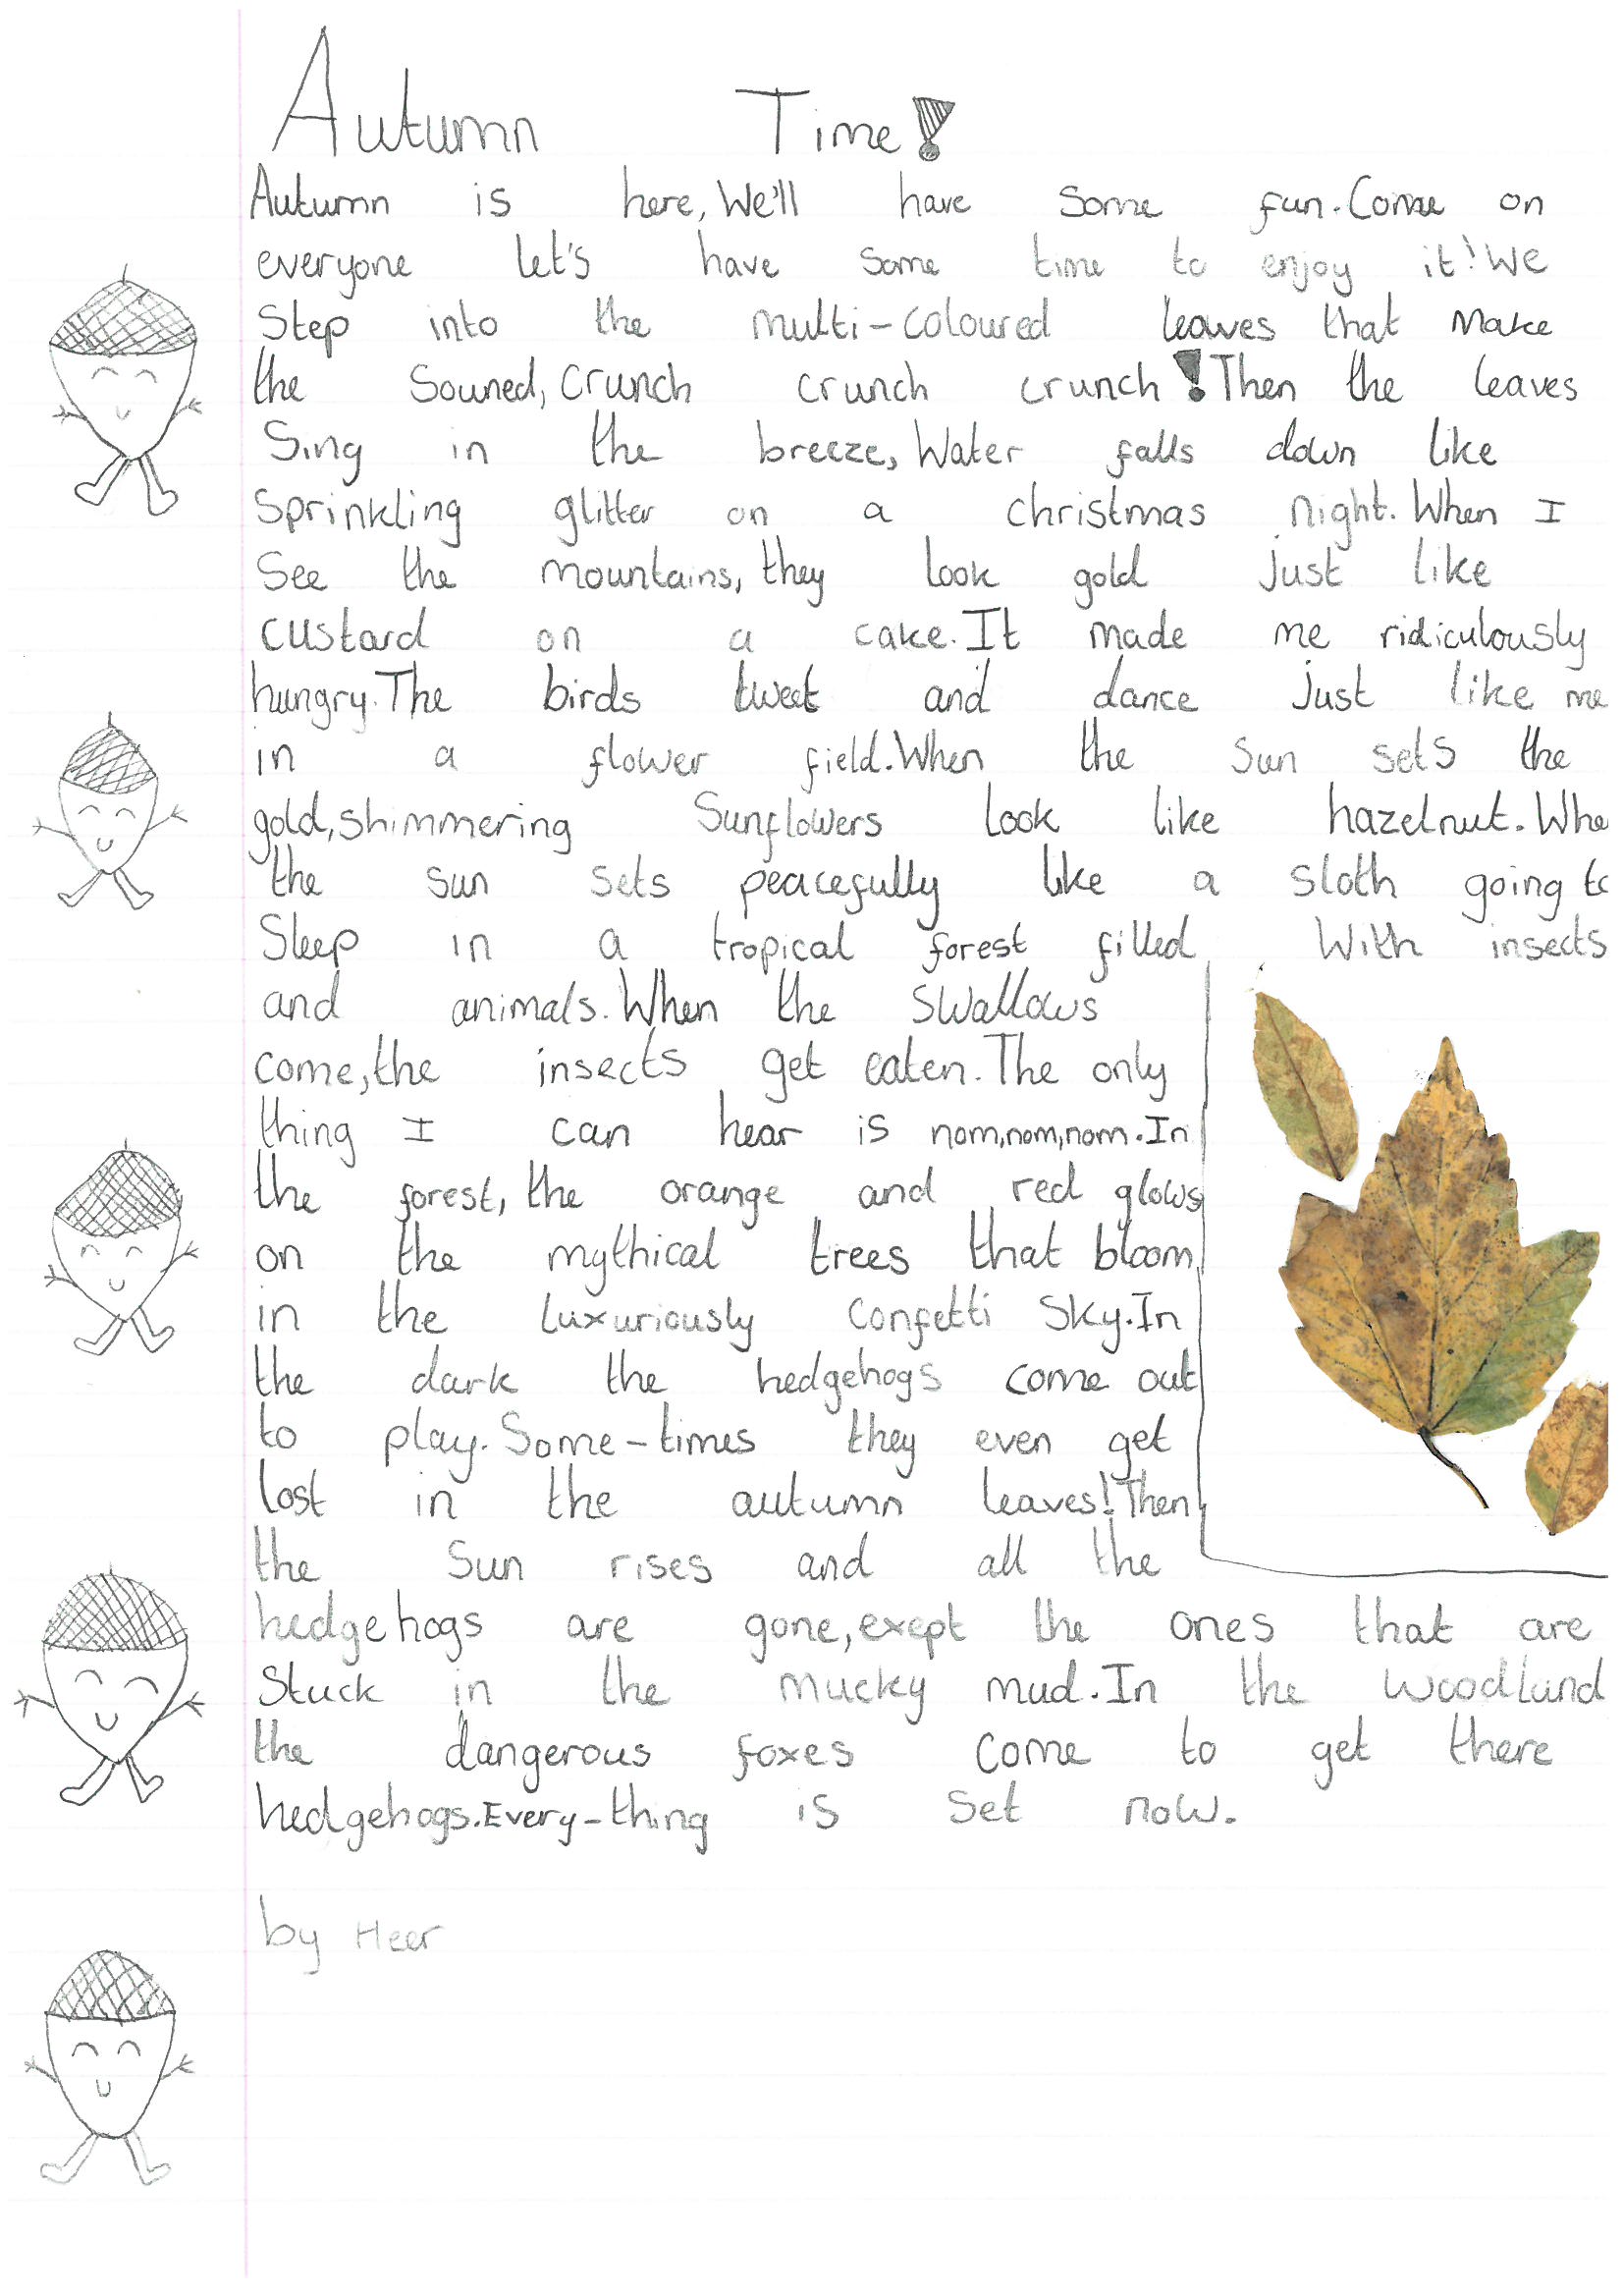 Autumn Time!
Autumn is here, We'll have some fun. Come on
everyone let's have some time to enjoy it! We
Step into the multi-coloured leaves that make
the Souned, crunch crunch crunch! Then the leaves
Sing in the breeze, Water falls down like
sprinkling glitter on a christmas night. When I
See the mountains, they look gold just like
custard on a cake. It made me ridiculously
hungry. The birds tweet and dance just like me
in a flower field. When the sun sets the
gold, shimmering Sunflowers look like hazelnut. Whe
the sun sets peacefully like a sloth going to
Sleep in a tropical forest filled With insects
and animals. When the swallows
come, the insects get eaten. The only
thing I can hear is nom, nom, nom. In
the forest, the orange and red glows
on the mythical trees that bloom
in the luxuriously confetti sky. In
the dark the hedgehogs come out
to play. Some-times they even get
lost in the autumn leaves! Then
the sun rises and all the
hedgehogs are gone, exept the ones that are
stuck in the mucky mud. In the woodland
the dangerous foxes come to get there
hedgehogs. Every-thing is set now.
by Heer